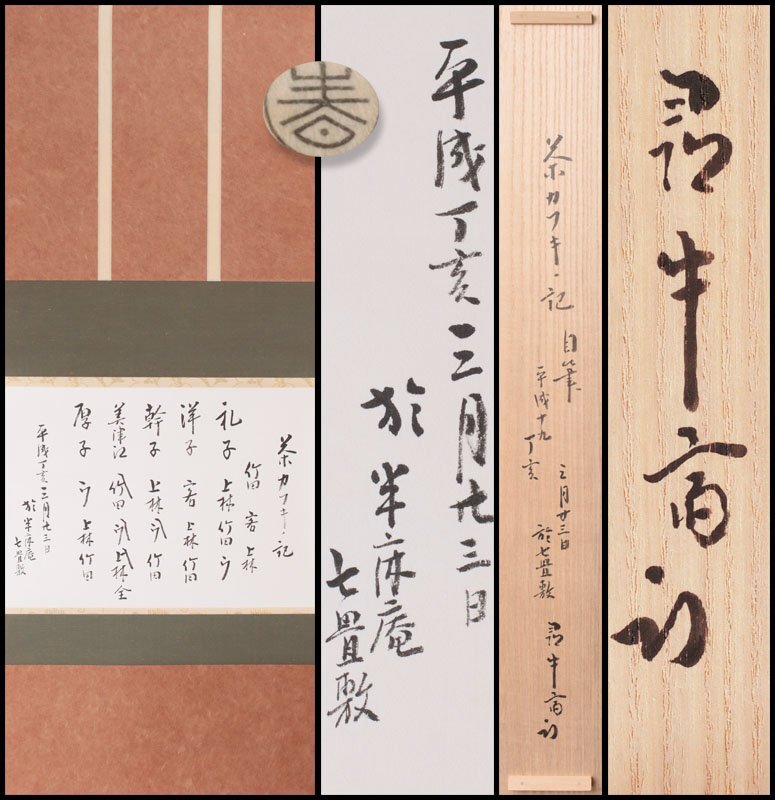 茶カフキ之記
竹田 客 上林
礼子 上林 竹田 ウ
洋子 客 上林 竹田
幹子 上林 ウ 竹田
美津江 竹田 ウ 上林 全
厚子 ウ 上林 竹田
平成丁亥三月廿三日
於半床庵
七畳敷
平成丁亥三月廿三日
於半床庵
七畳敷
茶カフキ之記 自筆
平成十九
丁亥
三月廿三日
於七畳敷
尋牛斎
尋牛斎